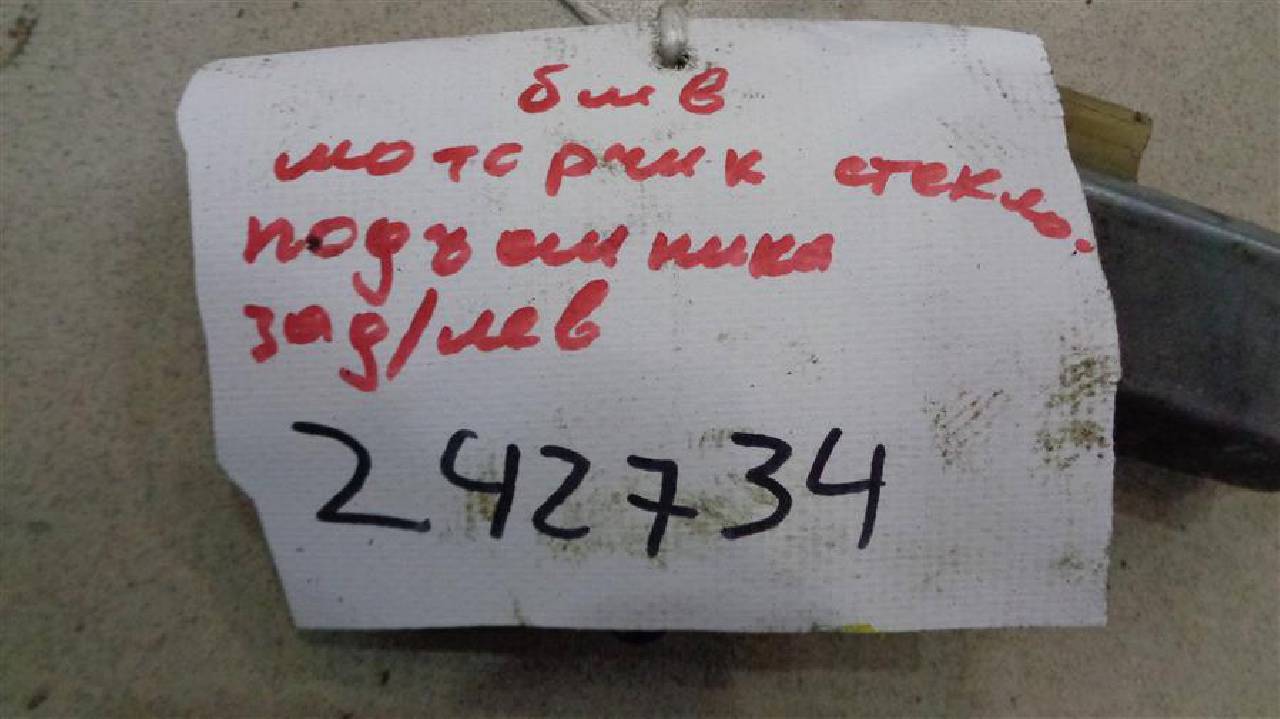 бмв
моторчик стекло.
подъемника
зад/лев
242734